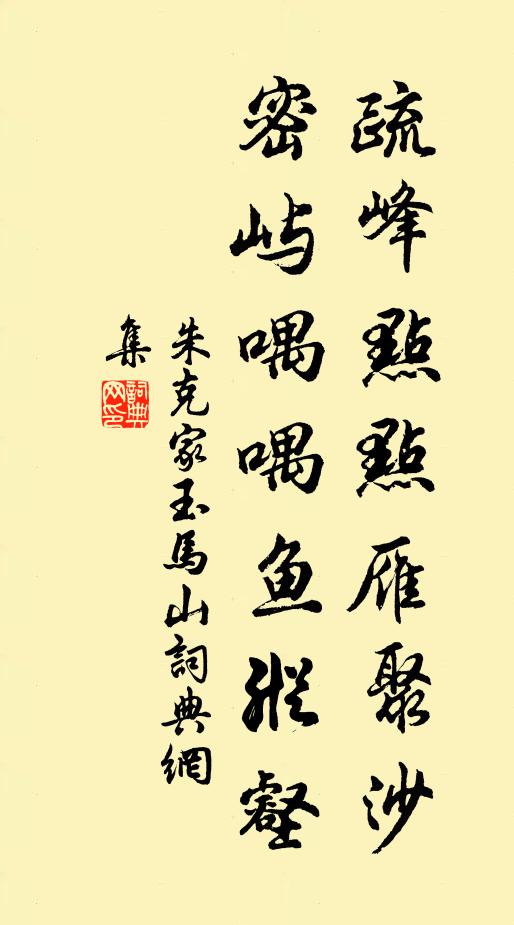 疏峰點點雁聚沙
密屿喁喁鱼縱壑
朱克家玉馬山詞典網
集
詞典網印